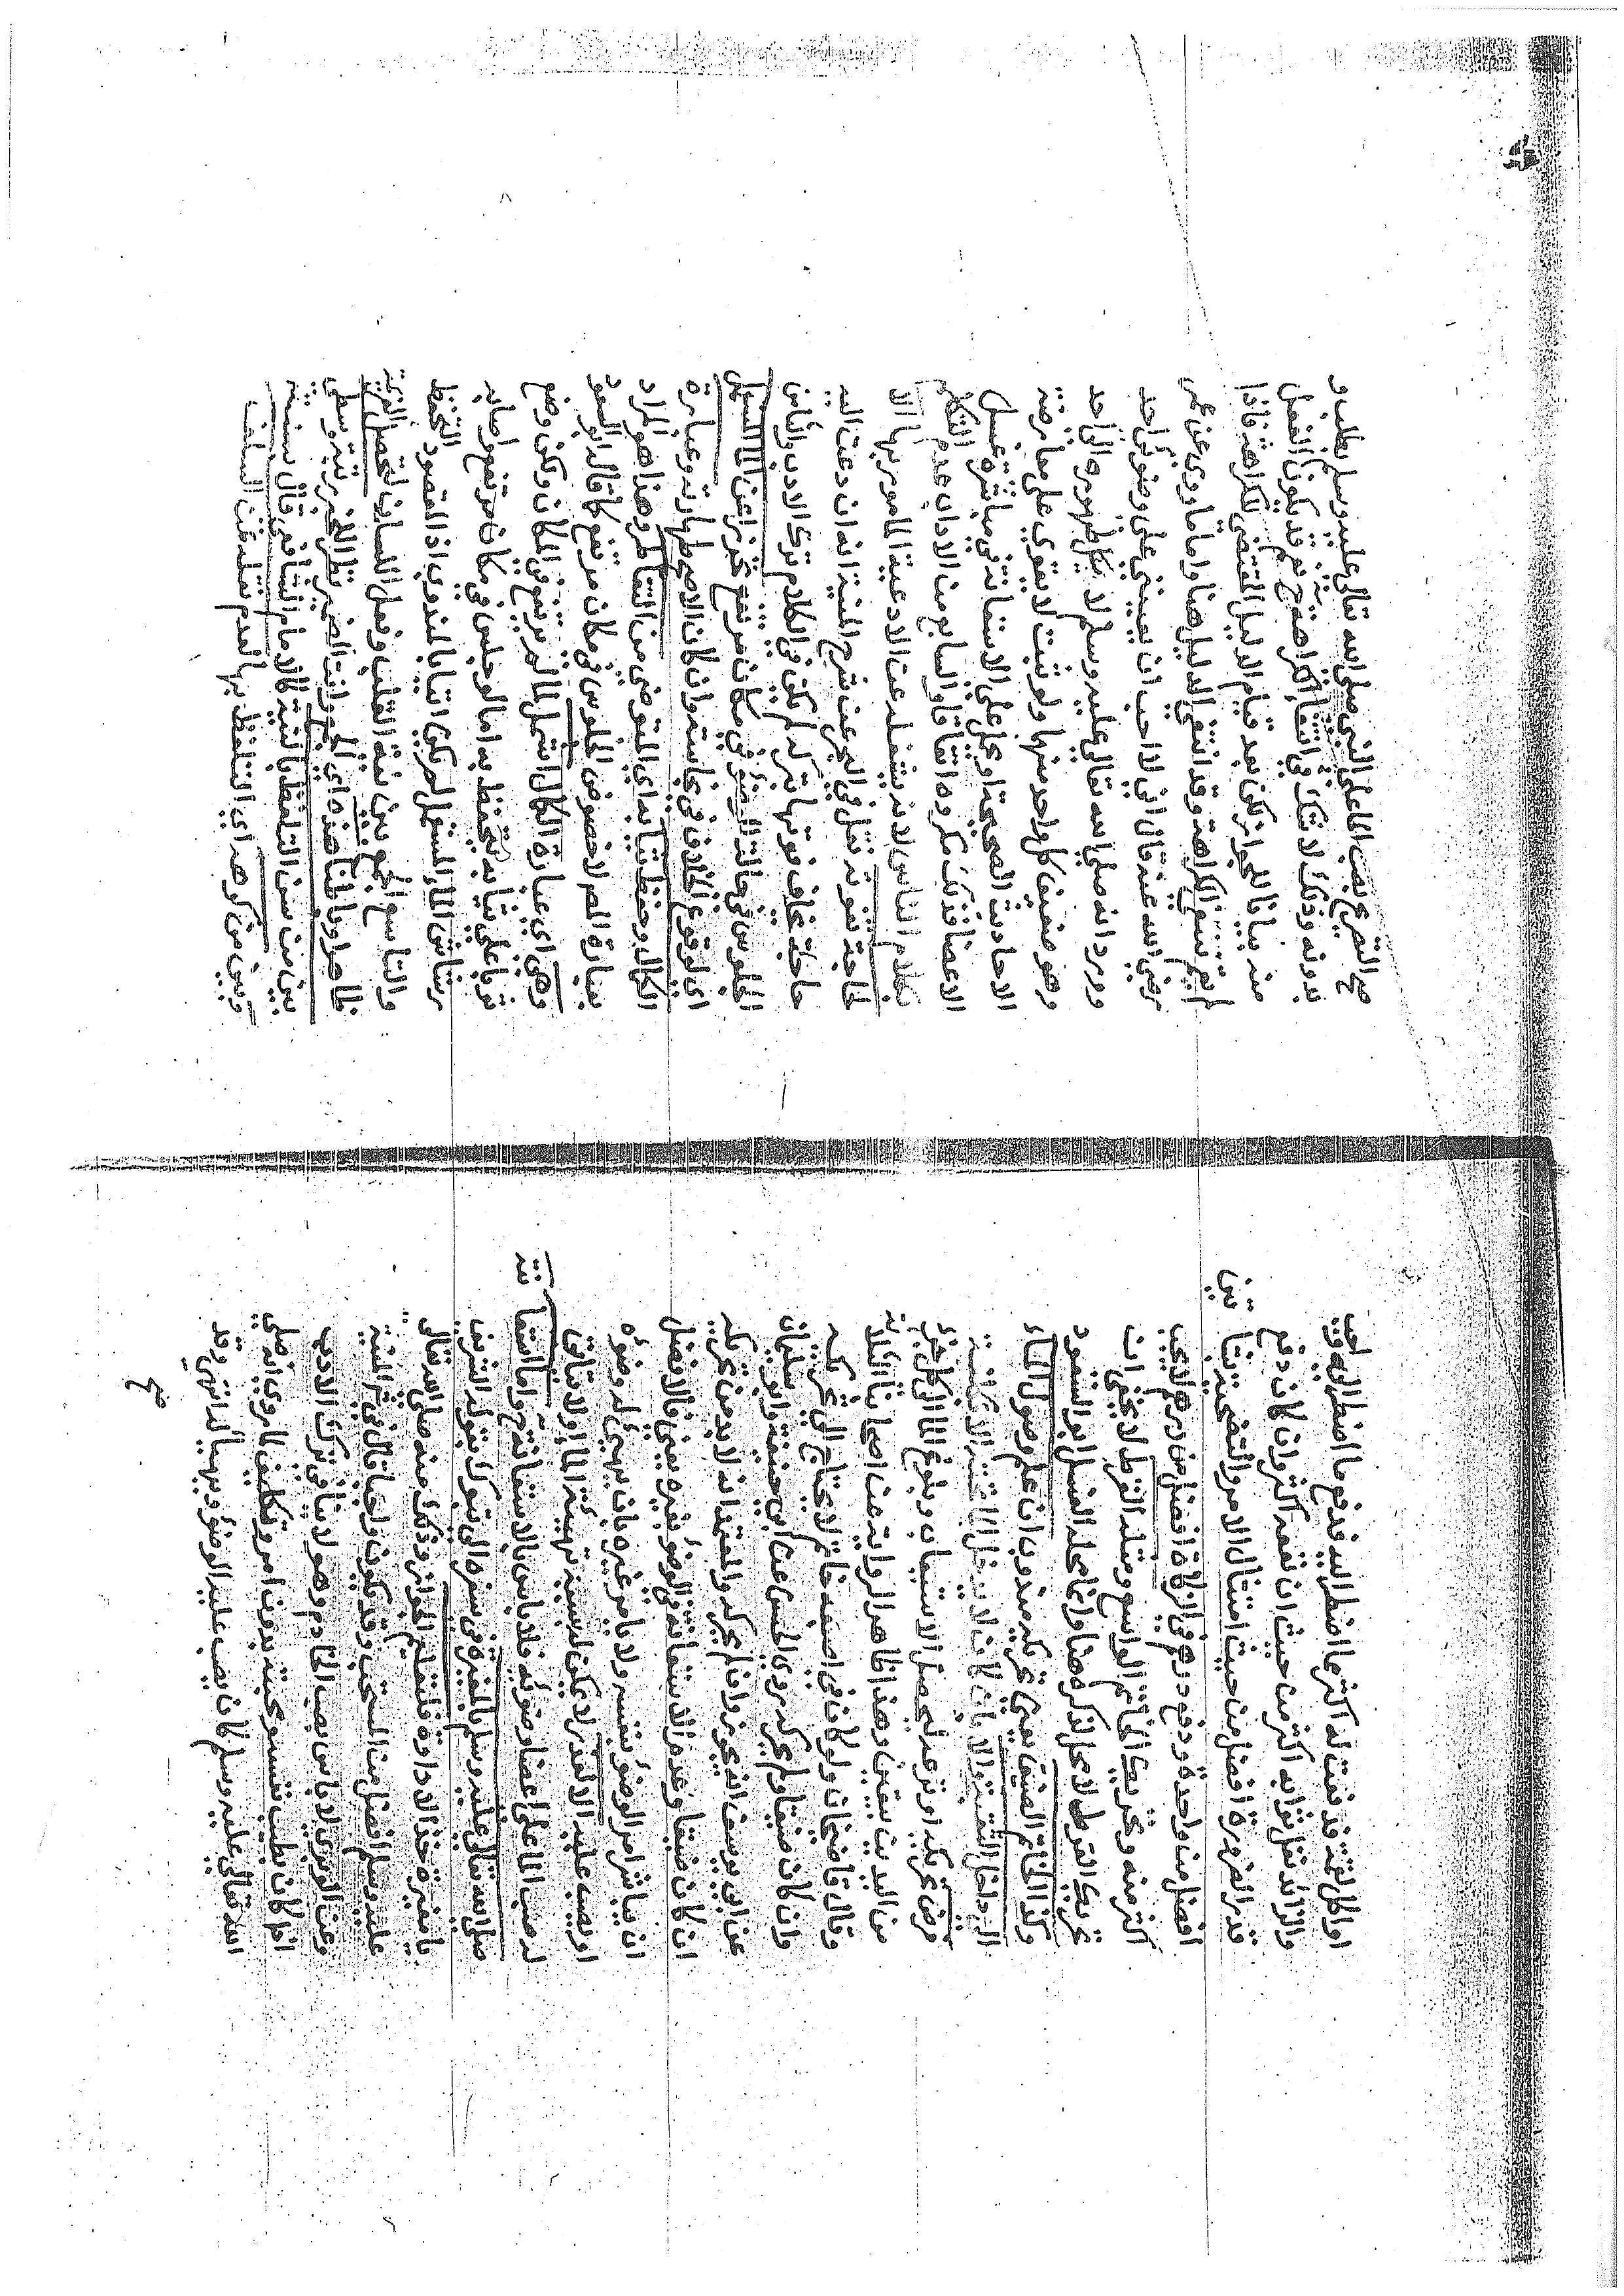 او اكل لقمة قد نفت له اكثر مما اضطر اليه فدفع ما اضطر اليه واجب
والزائد نفل ثوابه اكثر من حيث ان نفعه اكثر وان كان دفع
قدر الضرورة افضل من حيث امتثال الامر والتضحية
افضل منها واحدة ودفع درهم في الزكاة افضل من درهم لا يجب
اكثر منه وتحريك الخاتم الواسع ومثله القرط لا يخفى ان
تحريك القرط لا محل لذكره هنا وانما محله الغسل ابو السعود
وكذا الخاتم الضيق يعني تحريكه مندوب ان علم وصول الماء
الى داخل الثقب والا بان كان لا يدخل الماء
فرض تحريكه او نزعه ليحصل الاستيعاب وبلوغ الماء الى كل جزء
من اليدين بيقين وهذا ظاهر الرواية عن اصحابنا الثلاثة
وقال قاضيخان ولو كان في اصبعه خاتم لا يحتاج الى تحريكه
وان كان ضيقا ولم يحركه روى الحسن عن ابي حنيفة وابو سليمان
عن ابي يوسف انه يجوز وان لم يحركه والمعتمد انه لا بد من تحريكه
ان كان ضيقا وعدم الاستعانة في الوضوء بغيره يعني فالافضل
ان يباشر امر الوضوء بنفسه ولا يامر غيره بان يهيئ له وضوءه
او يصب عليه الا لعذر لا يمكن بسببه تهيئة الماء ولا يتأتى
له صب الماء على اعضاء وضوئه فلا باس بالاستعانة ح واما استعانته
صلى الله تعالى عليه وسلم بالمغيرة في سفره الى تبوك بقوله الشريف
يا مغيرة خذ الاداوة فلتعليم الجواز وذلك منه صلى الله تعالى
عليه وسلم افضل من المستحب وقد يكون واجبا قال في شرح المنية
وعن الوبري لا باس بصب الخادم وهو لا ينافي ترك الادب
اذا كان بطيب نفس ومحبة بدون امر وتكليف لما روي انه صلى
الله تعالى عليه وسلم كان يصب عليه الوضوء ويهيأ له انتهى وقد
صح
مع التصريح بصب الماء على النبي صلى الله تعالى عليه وسلم بطلبه و
بدونه وذلك لا شك في انتفاء الكراهة ح نعم قد يكون الفعل
منه بيانا للجواز لكن بعد قيام الدليل المقتضي للكراهة فاذا
لم يقم تنتفي الكراهة وقد انتفى الدليل هنا واما ما روى عن عمر
رضي الله عنه قال اني لا احب ان يعينني على وضوئي احد
وورد انه صلى الله تعالى عليه وسلم لا يكل طهوره الى احد
وهو ضعيف كل واحد منهما ولو ثبت لا يقوى على معارضة
الاحاديث الصحيحة او يحمل على الاستعانة في مباشرة غسل
الاعضاء فذلك مكروه اتفاقا والسابع من الاداب عدم التكلم
بكلام الناس لانه يشغله عن الادعية المامور بها الا
لحاجة تفوته نقل في البحر عن شرح المنية انه ان دعت اليه
حاجة يخاف فوتها بتركه لم يكن في الكلام ترك الادب والثامن
الجلوس في حالة الوضوء في مكان مرتفع تحرزا عن الماء المستعمل
اي لوقوع الخلاف في نجاسته وان كان الاصح طهارته وعبارة
الكمال وحفظ ثيابه اي المتوضئ من التقاطر وهذا هو المراد
بعبارة المص لا خصوص الجلوس في مكان مرتفع كما قاله ابو السعود
وهي اي عبارة الكمال اشمل لما لم يرتفع من المكان ولكن وضع
ثوبا على ثيابه تحفظ به اما لو جلس في مكان مرتفع واصابه
رشاش الماء المستعمل لم يكن اتيا بالمندوب اذ المقصود التحفظ
والتاسع الجمع بين نية القلب وفعل اللسان لتحصيل العزيمة
ظاهرا وباطنا هذه اي الجمع وانث الضمير نظرا للخبر رتبة وسطى
بين من سن التلفظ بالنية كالامام الشافعي قال بسنيته
وبين من كرهه اي التلفظ بها لعدم نقله عن السلف